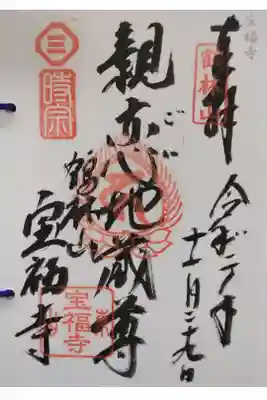 宝福寺
奉拝
鶴林山
令和二年
十一月二十九日
親恋地蔵尊
鶴林山
宝福寺
宝福寺
三
時宗